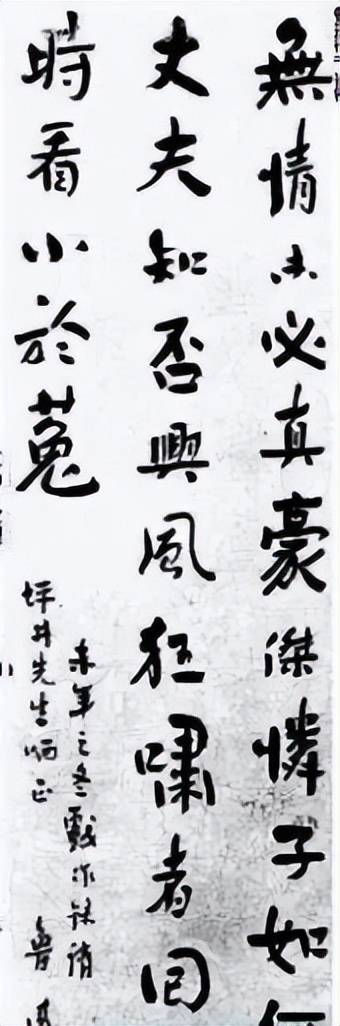 無情未必真豪傑憐子如何
丈夫知否興風狂嘯者回
時看小於菟
未年之冬戲作錄請
坪井先生哂正
魯迅